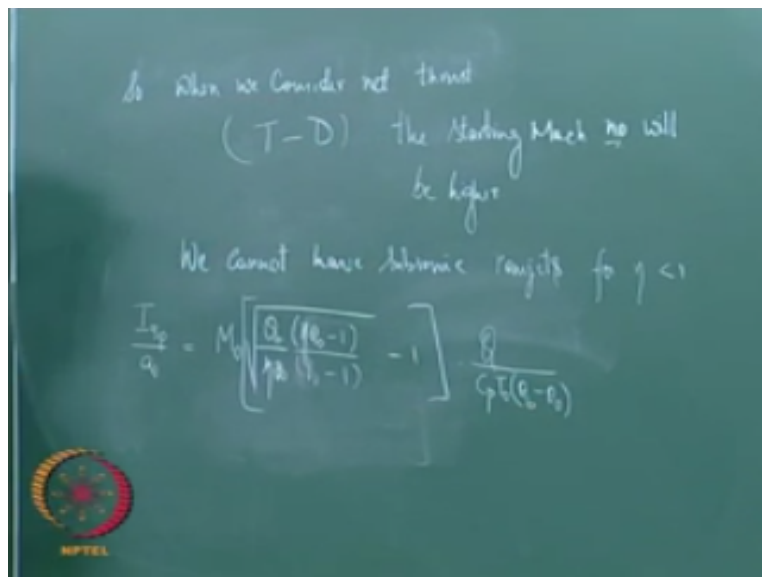 So when we consider net thrust
(T - D) the starting Mach no will
be higher
We cannot have subsonic ramjets for η < 1
I_sp / a_0 = M_0 [ √( θ_b (ηθ_0 - 1) / (ηθ_0 (θ_0 - 1)) ) - 1 ] Q / (C_p T_0 (θ_b - θ_0))
NPTEL